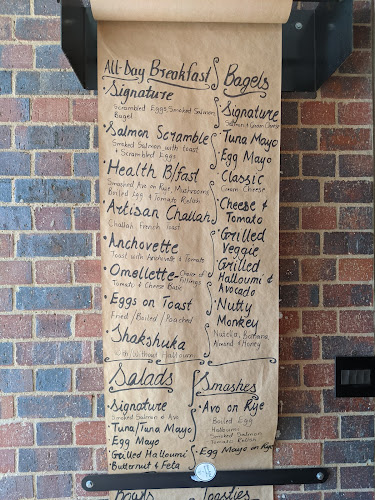 All-Day Breakfast
Signature
Scrambled Eggs, Smoked Salmon
Bagel
Salmon Scramble
Smoked Salmon with toast
+ Scrambled Eggs
Health B/fast
Smashed Avo on Rye, Mushrooms
Boiled Egg & Tomato Relish
Artisan Challah
Challah French toast
Anchovette
Toast with Anchovette & Tomato
Omellette - Choice of
Fillings
Tomato & Cheese Basic
Eggs on Toast
Fried / Boiled / Poached
Shakshuka
With/Without Halloumi
Bagels
Signature
Salmon & Cream Cheese
Tuna Mayo
Egg Mayo
Classic
Cream Cheese
Cheese &
Tomato
Grilled
Veggie
Grilled
Halloumi &
Avocado
Nutty
Monkey
Nutella, Banana,
Almond & Honey
Salads
Signature
Smoked Salmon & Avo
Tuna/Tuna Mayo
Egg Mayo
Grilled Halloumi
Butternut & Feta
Smashes
Avo on Rye
Boiled Egg
Halloumi
Smoked Salmon
Tomato Relish
Egg Mayo on Rye
Bowls
Toasties